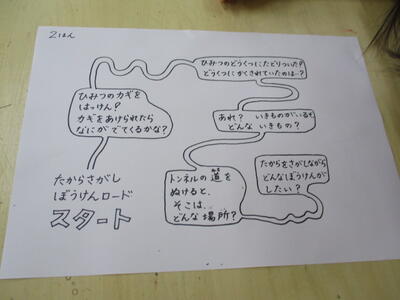 2はん
たからさがし
ぼうけんロード
スタート
ひみつのカギを
はっけん？
カギをあけられたら
なにが でてくるかな？
ひみつのどうくつにたどりついた？
どうくつにかくされていたのは…？
あれ？ いきものがいるぞ
どんな いきもの？
トンネルの道を
ぬけると、
そこは、
どんな場所？
たからをさがしながら
どんなぼうけんが
したい？